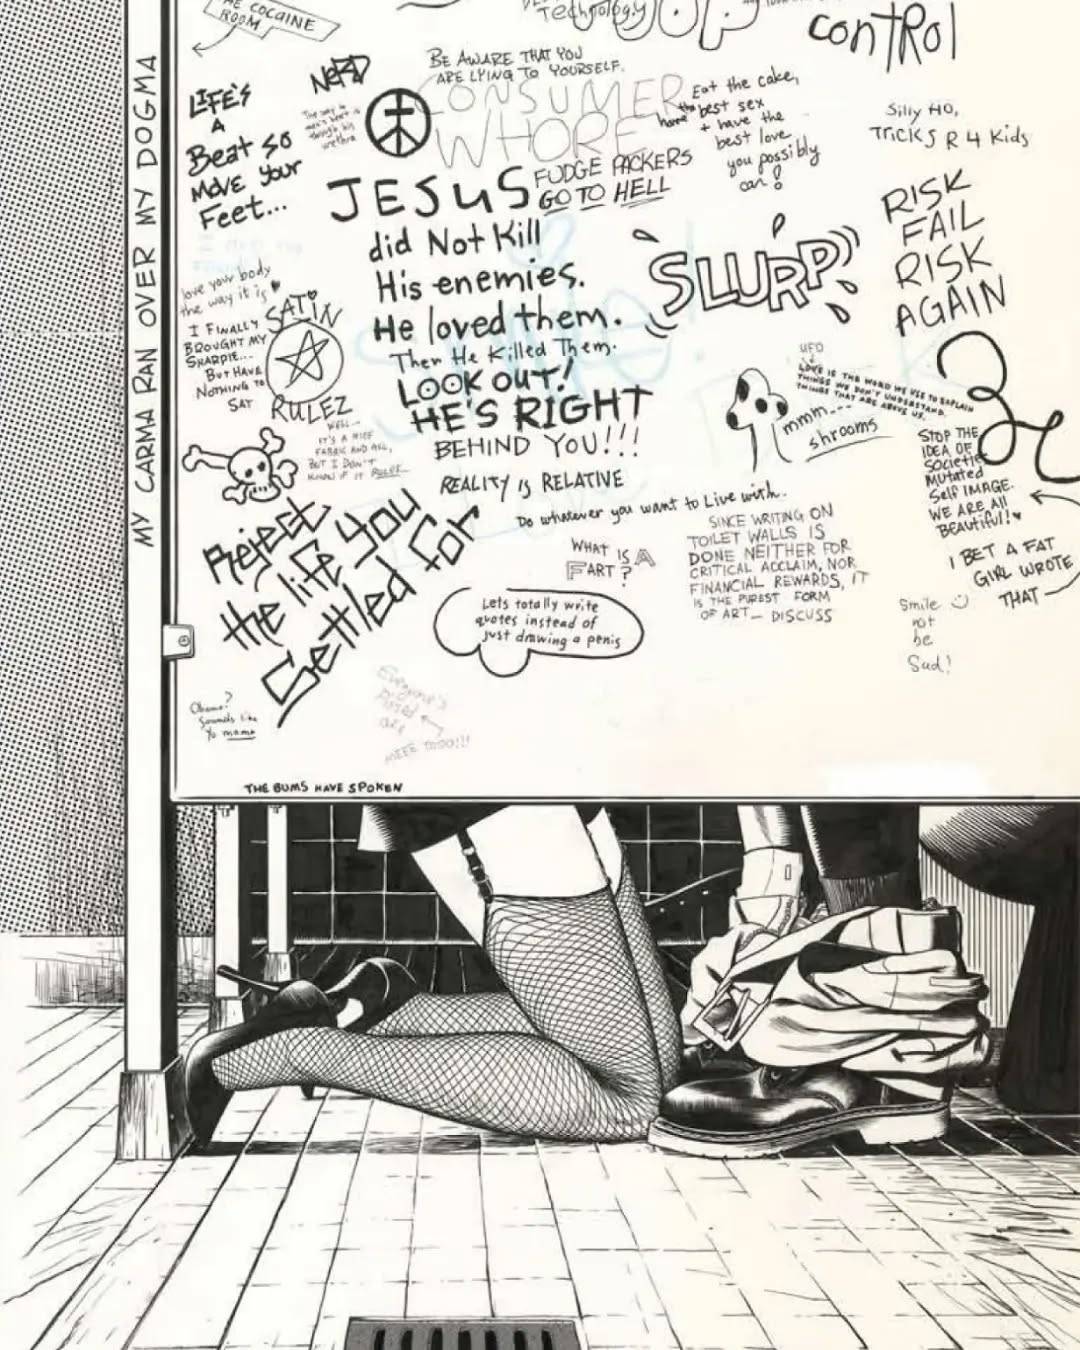 COCAINE
ROOM
Technology
control
LIFE'S
A
Beat so
Move Your
Feet...
NERD
BE AWARE THAT YOU
ARE LYING TO YOURSELF.
CONSUMER
WHORE
Eat the cake,
have the best sex
+ have the
best love
you possibly
can!
Silly HO,
TRICKS R 4 Kids
FUDGE PACKERS
GO TO HELL
JESUS
did Not Kill
His enemies.
He loved them.
Then He Killed Them.
LOOK OUT!
HE'S RIGHT
BEHIND YOU!!!
SLURP
RISK
FAIL
RISK
AGAIN
MY CARMA RAN OVER MY DOGMA
love your body
the way it is
I FINALLY
BROUGHT MY
SHARPIE...
BUT HAVE
NOTHING TO
SAY
SATIN
RULEZ
WELL...
IT'S A NICE
FABRIC AND ALL,
BUT I DON'T
KNOW IF IT RULES...
UFO
LOVE IS THE WORD WE USE TO EXPLAIN
THINGS WE DON'T UNDERSTAND.
THINGS THAT ARE ABOVE US.
mmm...
shrooms
STOP THE
IDEA OF
Societies
Mutated
Self IMAGE.
WE ARE All
Beautiful!
I BET A FAT
GIRL WROTE
THAT
REALITY is RELATIVE
Do whatever you want to Live with.
Reject
the life You
Settled for
WHAT IS A
FART?
SINCE WRITING ON
TOILET WALLS IS
DONE NEITHER FOR
CRITICAL ACCLAIM, NOR
FINANCIAL REWARDS, IT
IS THE PUREST FORM
OF ART— DISCUSS
Lets totally write
quotes instead of
just drawing a penis
Smile
not
be
Sad!
Obama?
Sounds like
Yo mama
Everyone's
Pissed
are
MEEE TOO!!!
THE BUMS HAVE SPOKEN